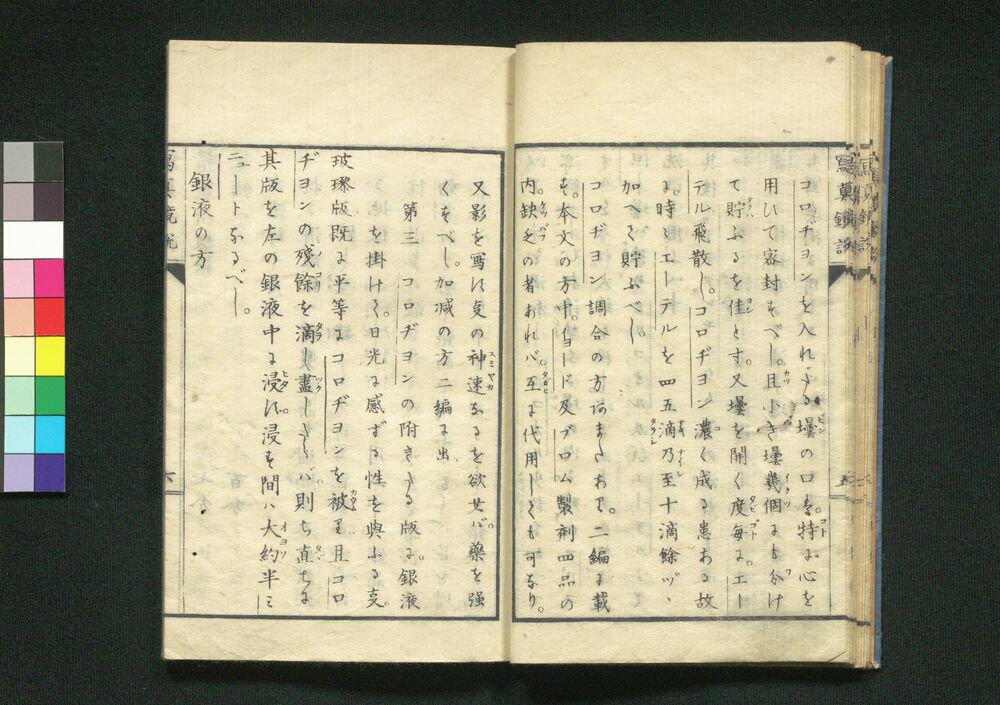 コロヂヨンを入れたる壜の口は。特に心を
用ひて密封すべし。且小き壜幾個にも分け
て貯ふるを佳とす。又壜を開く度毎に。エー
テル飛散し。コロヂヨン濃く成る患ある故
に。時々エーテルを四五滴乃至十滴餘ヅヽ
加へて貯ふべし。
コロヂヨン調合の方何またあり。二編に載
す。本文の方中。イヨード及ブロム製剤四品の
内缺乏の者あれバ。互に代用しても可なり。
又影を写す支の神速なるを欲せバ。藥を強
くすべし。加減の方二編に出。
第三 コロヂヨンの附きたる版に。銀液
を掛けて日光に感ずる性を與ふる支。
玻瓈版既に平等にコロヂヨンを被り且コロ
ヂヨンの残餘を滴し盡したらバ則ち直ちに
其版を左の銀液中に浸す。浸す間ハ大約半ミ
ニュートなるべし。
銀液の方
寫真鏡説
五
六